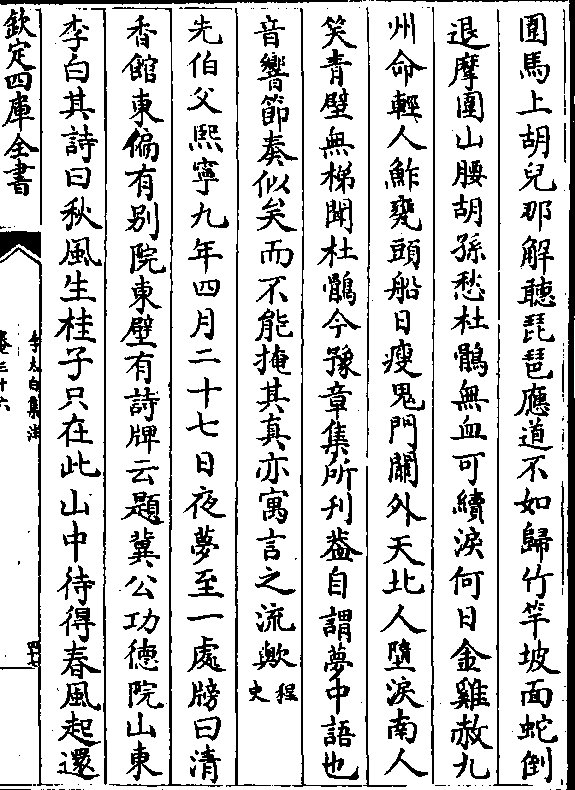 圍馬上胡兒那解聽琵琶應道不如歸竹竿坡面蛇倒
退摩圍山腰胡孫愁杜鵑無血可續淚何日金雞赦九
州命輕人鮓甕頭船日瘦鬼門關外天北人墮淚南人
笑青壁無梯聞杜鵑今豫章集所刋葢自謂夢中語也
音響節奏似矣而不能掩其真亦寓言之流歟程史
先伯父熙寧九年四月二十七日夜夢至一處牓曰清
香館東偏有别院東壁有詩牌云題冀公功德院山東
李白其詩曰秋風生桂子只在此山中待得春風起還
欽定四庫全書
李太白集注
卷三十六